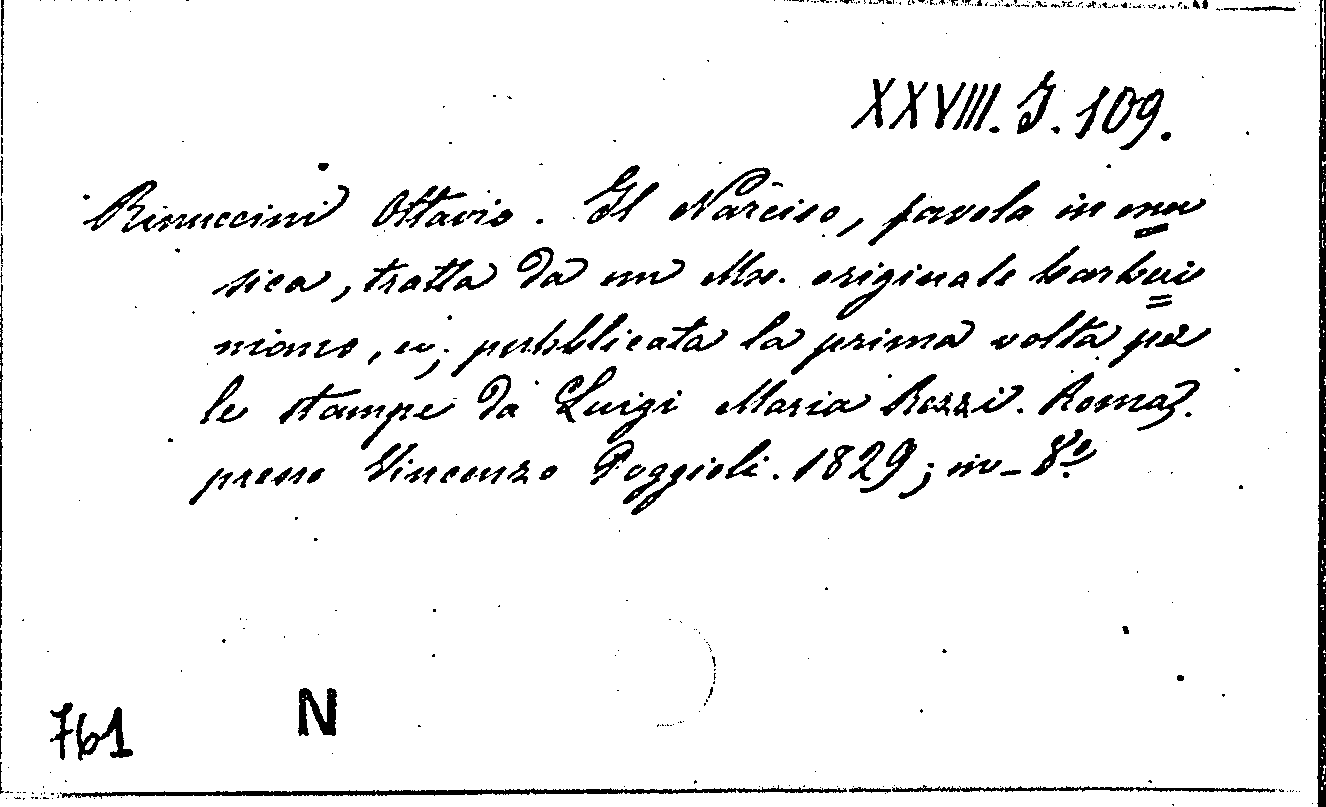 XXVIII. J. 109.
Rinuccini Ottavio. Il Narciso, favola in mu=
sica, tratta da un Ms. originale barberi=
niano, e pubblicata la prima volta per
le stampe da Luigi Maria Rezzi. Roma.
presso Vincenzo Poggioli. 1829; in-8º
761 N